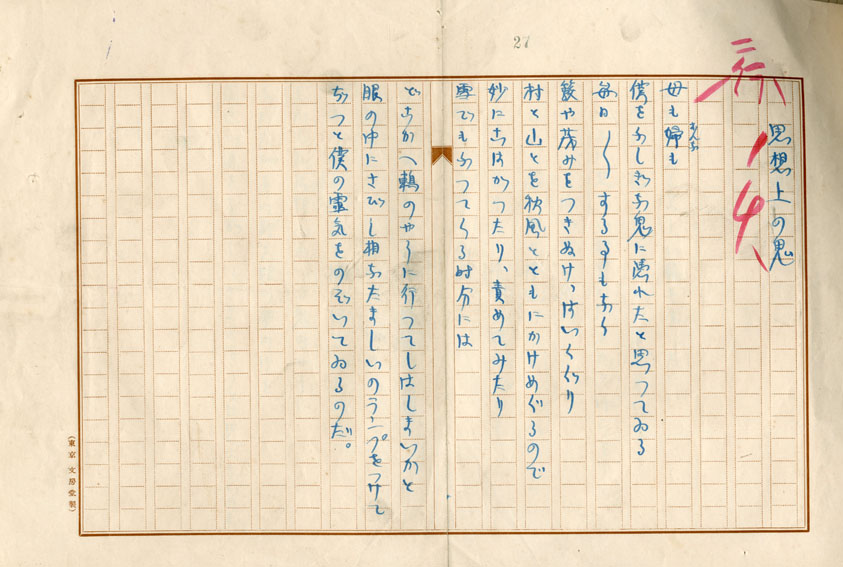 27
思想上の鬼
母も婦も
おんな
僕をふしぎな鬼に憑れたと思つてゐる
毎日〱するこ​ともなく
籔や茂みをつきぬけ、はいくぐり
村と山とを秋風とともにかけめぐるので
妙にこはがつたり、責めてみたり
雪でもふつてくる時分には
どこかへ鶫のやうに行つてしはしまいかと
眼の中にさびし相なたましいのランプをつけて
ぢつと僕の霊気をのぞいてゐるのだ。
(東京 文房堂製)